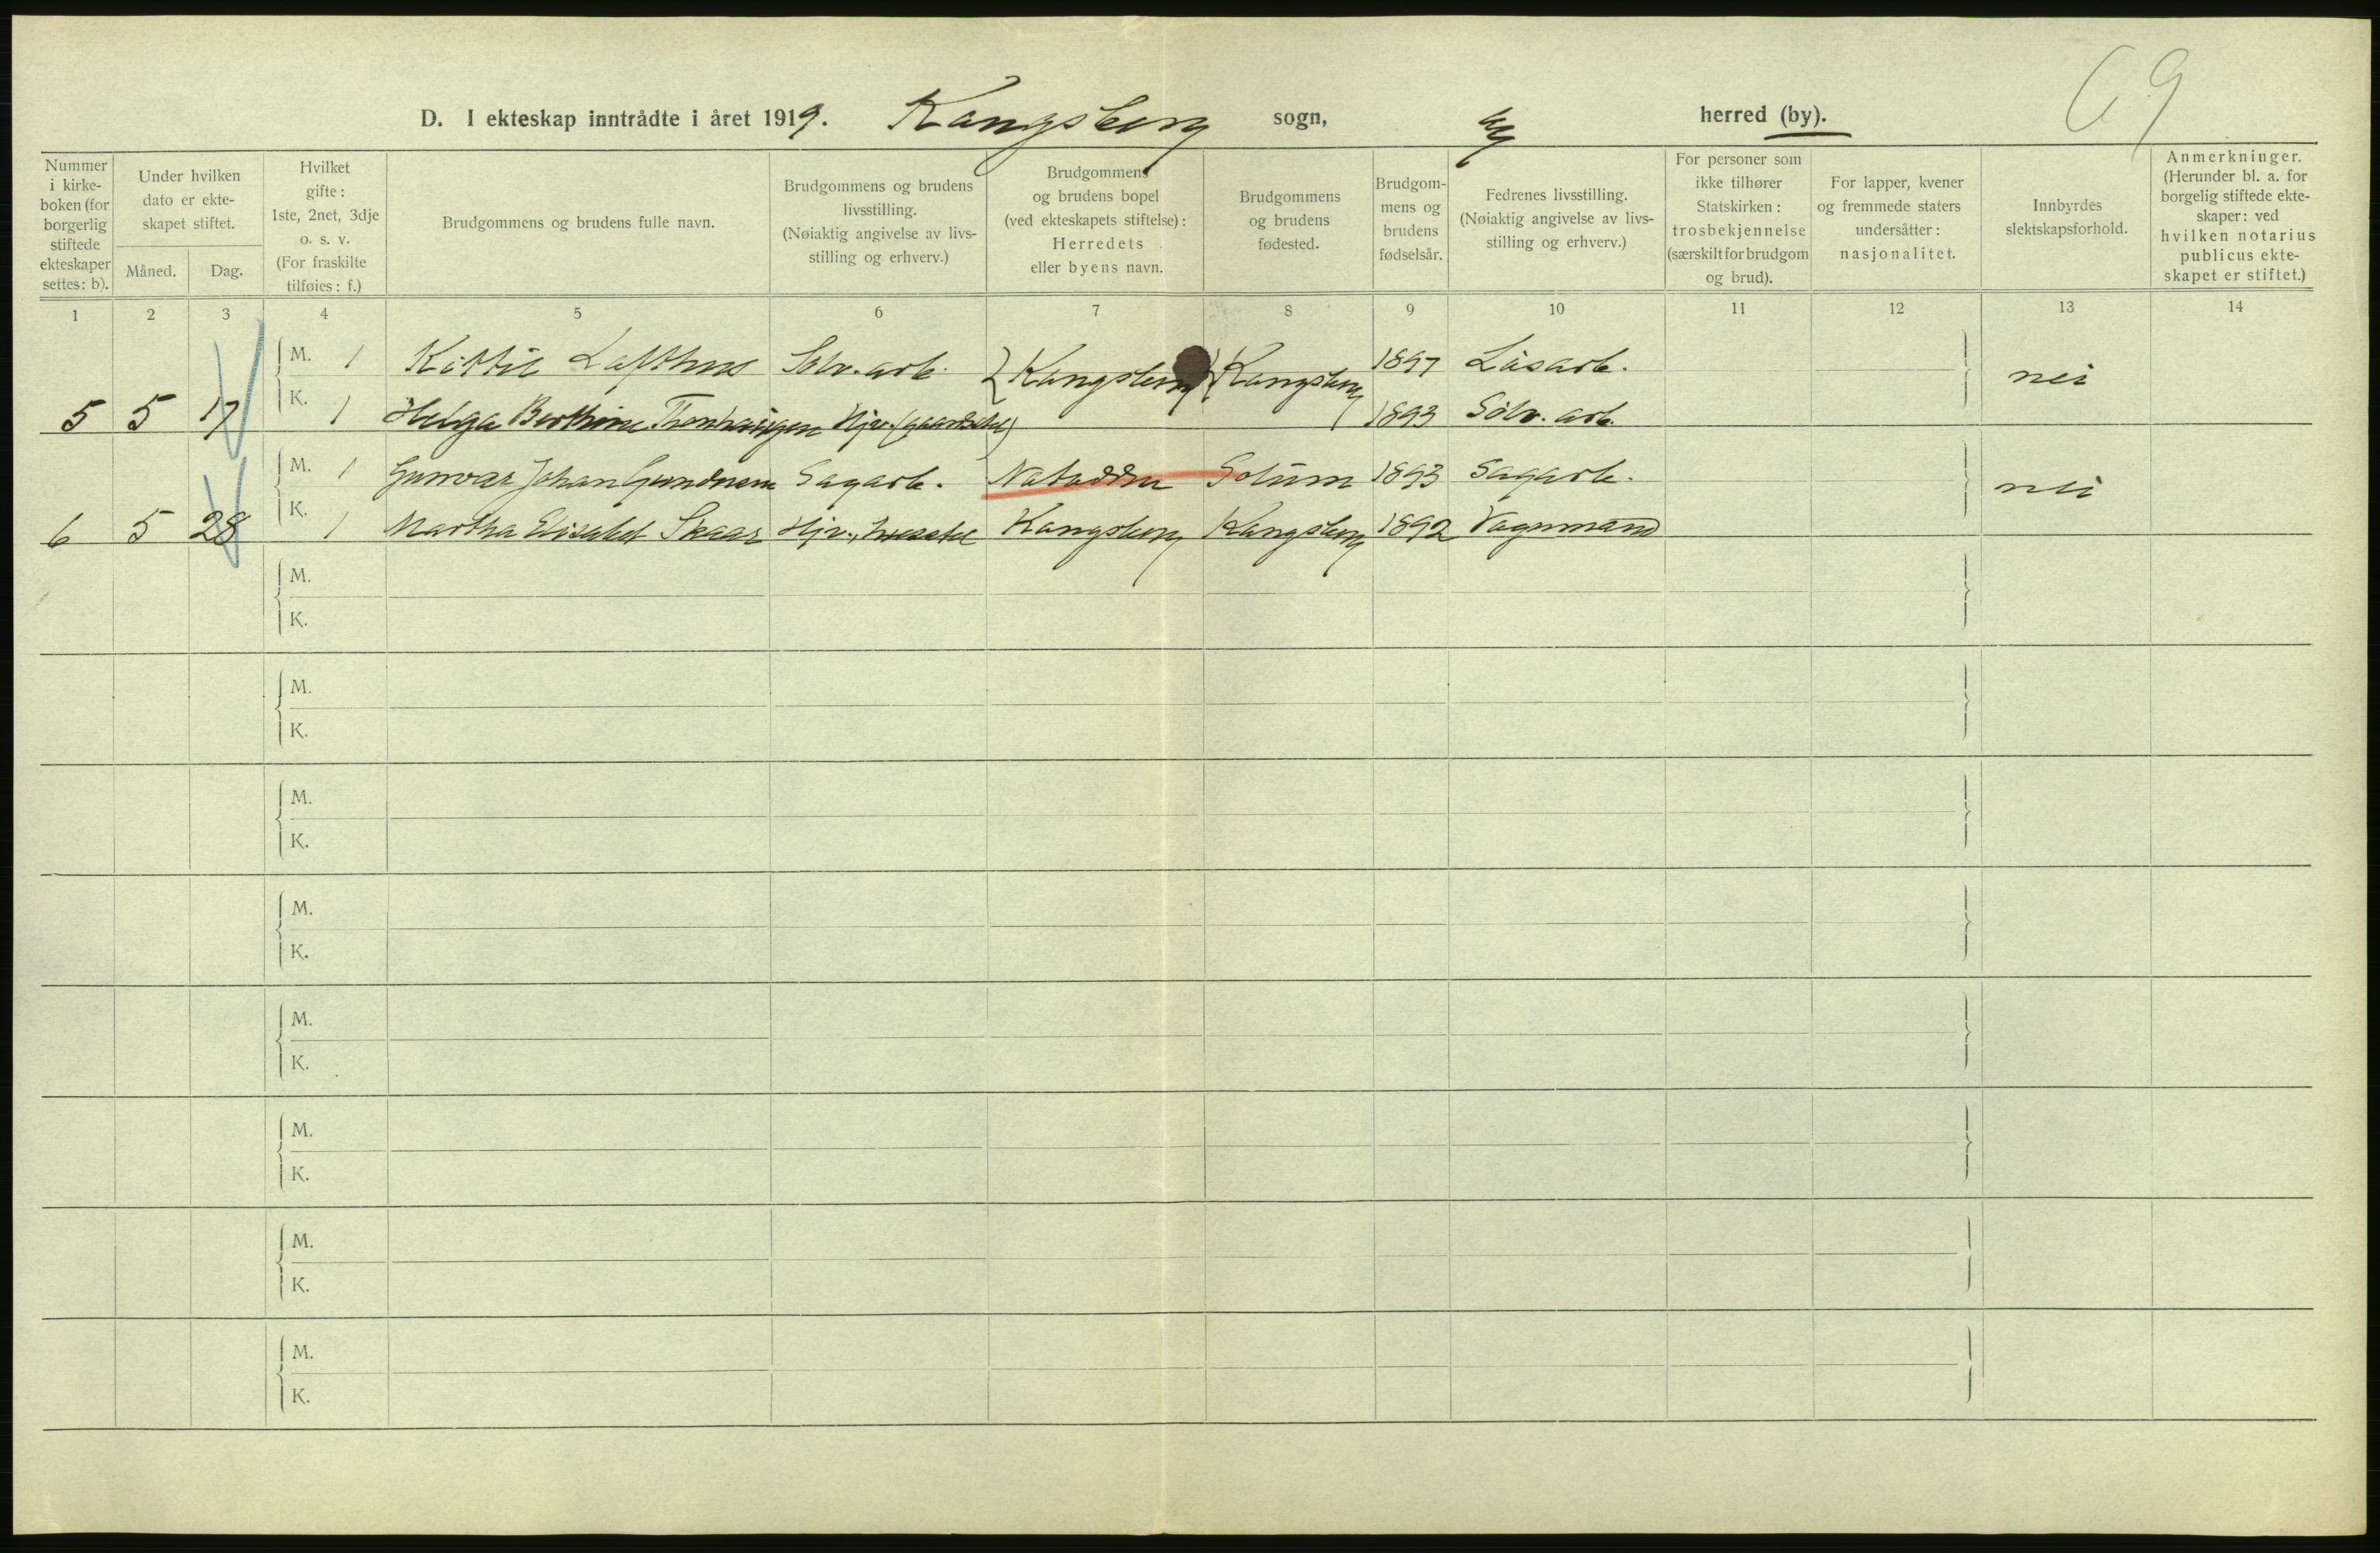 69
D. I ekteskap inntrådte i året 1919. Kongsberg sogn, by herred (by).
Nummer i kirkeboken (for borgerlig stiftede ekteskaper settes: b).
Under hvilken dato er ekteskapet stiftet.
Måned. Dag.
Hvilket gifte: 1ste, 2net, 3dje o. s. v. (For fraskilte tilføies: f.)
Brudgommens og brudens fulle navn.
Brudgommens og brudens livsstilling. (Nøiaktig angivelse av livsstilling og erhverv.)
Brudgommens og brudens bopel (ved ekteskapets stiftelse): Herredets eller byens navn.
Brudgommens og brudens fødested.
Brudgommens og brudens fødselsår.
Fedrenes livsstilling. (Nøiaktig angivelse av livsstilling og erhverv.)
For personer som ikke tilhører Statskirken: trosbekjennelse (særskilt for brudgom og brud).
For lapper, kvener og fremmede staters undersåtter: nasjonalitet.
Innbyrdes slektskapsforhold.
Anmerkninger. (Herunder bl. a. for borgelig stiftede ekteskaper: ved hvilken notarius publicus ekteskapet er stiftet.)
1 2 3 4 5 6 7 8 9 10 11 12 13 14
M. 1 Kittil Lofthus Sølv. arb. Kongsberg Kongsberg 1897 Løsarb. nei
5 5 17 K. 1 Helga Berthine 1893 Sølv. arb.
M. 1 Gunvar Johan Sagarb. Notodden Solum 1893 Sagarb. nei
6 5 28 K. 1 Martha Elisabet Skaar Hjv., Kongsberg Kongsberg 1892 Vognmand
M.
K.
M.
K.
M.
K.
M.
K.
M.
K.
M.
K.
M.
K.
M.
K.